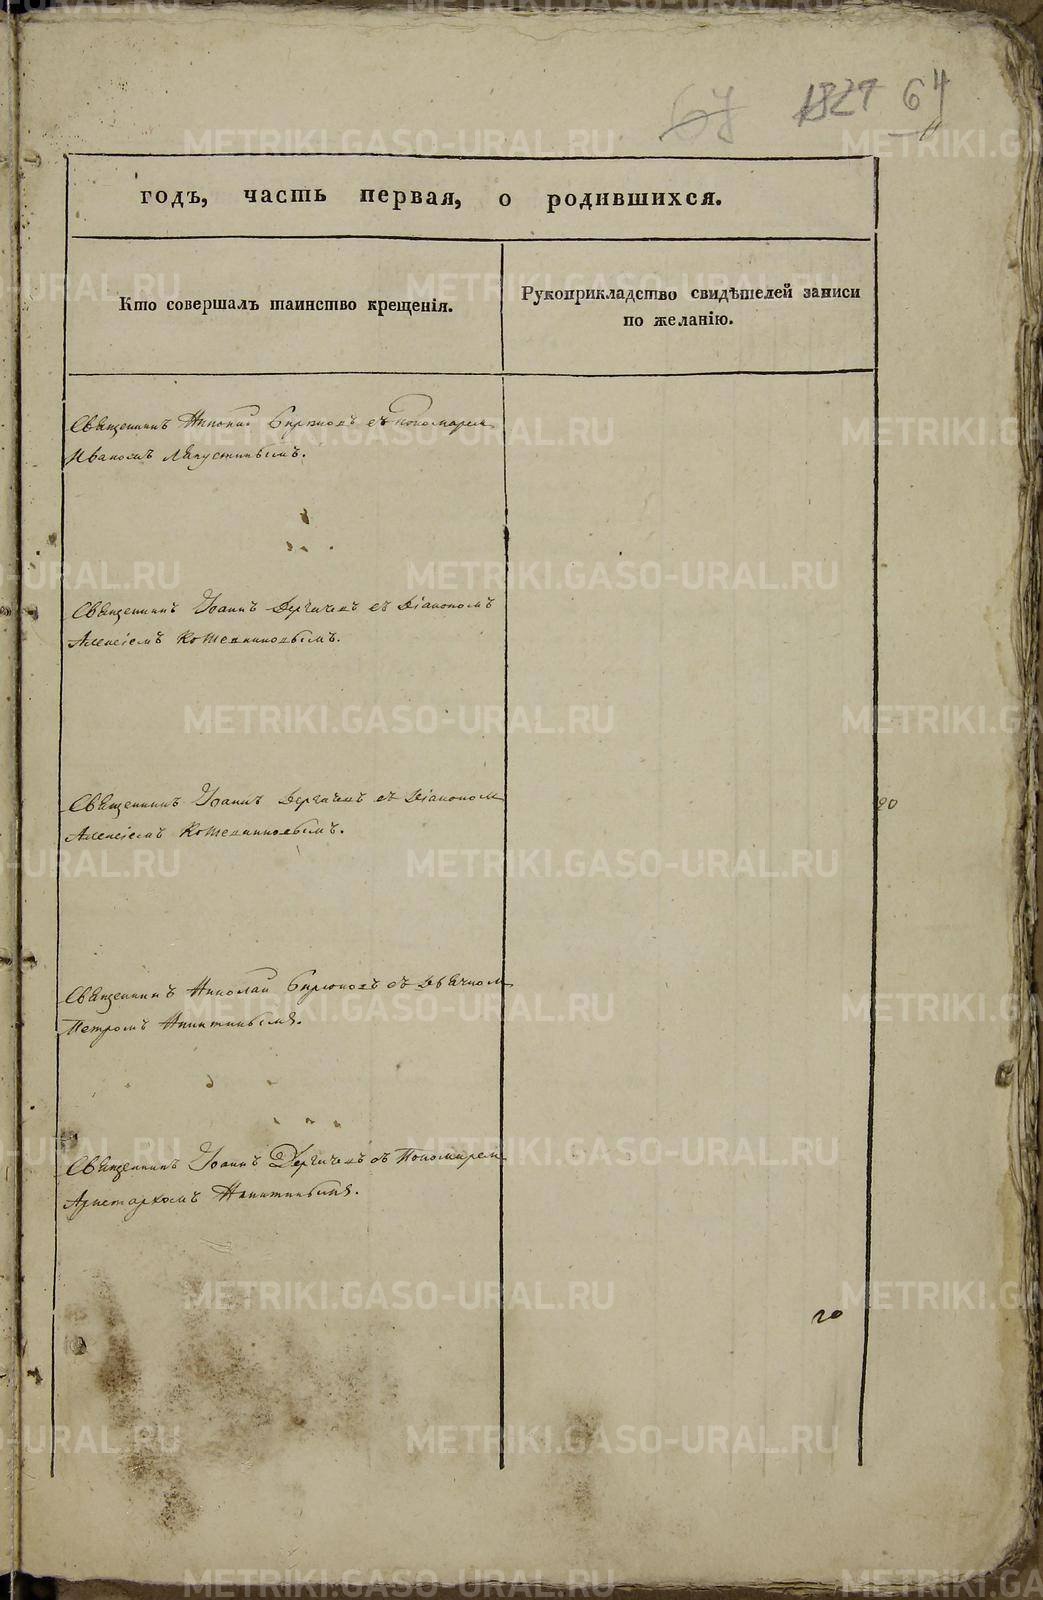 1827 64
67
годъ, часть первая, о родившихся.
Кто совершалъ таинство крещенія.
Рукоприкладство свидѣтелей записи
по желанію.
Священникъ Николай Бирюковъ съ Пономарем
Иваномъ Лапустинымъ.
Священникъ Іоаннъ Дергачевъ съ Діакономъ
Алексіемъ Кожевниковымъ.
Священникъ Іоаннъ Дергачевъ съ Діаконом
Алексіемъ Кожевниковымъ.
Священникъ Николай Бирюковъ съ Дьячком
Петромъ Никитинымъ.
Священникъ Іоаннъ Дергачевъ съ Пономарем
Аристархомъ Никитинымъ.
METRIKI.GASO-URAL.RU